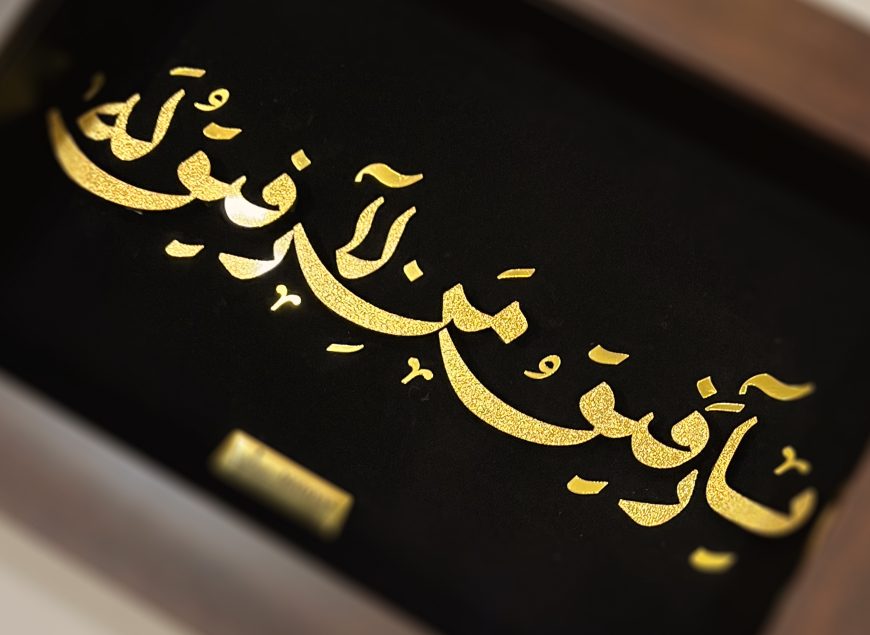 يَا رَفِيقُ مَنْ لَا رَفِيقَ لَهُ